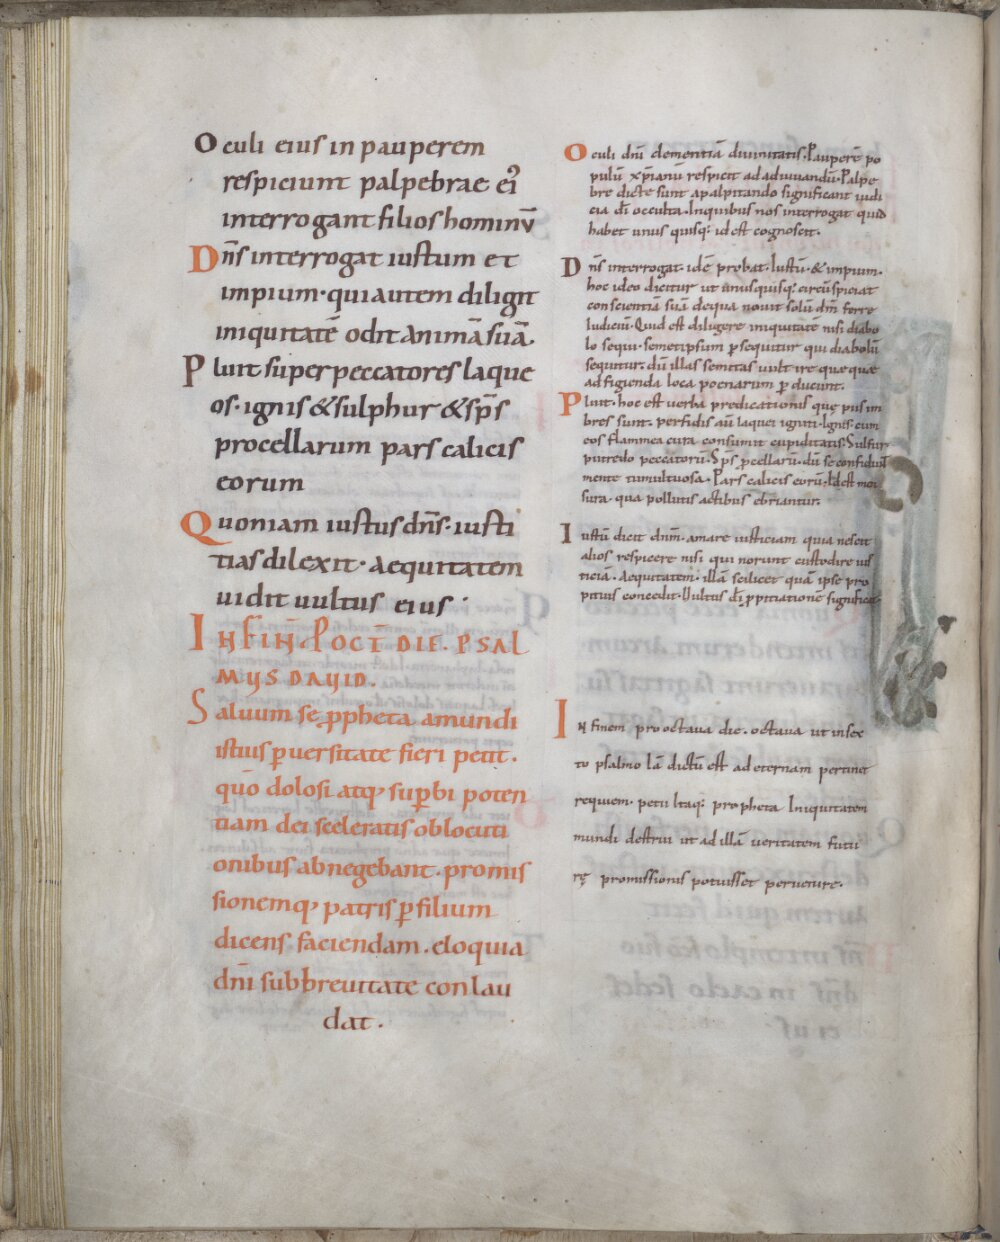 Oculi eius in pauperem
respiciunt palpebrae ei᾽
interrogant filios hominū
Dn̄s interrogat iustum et
impium · qui autem diligit
iniquitatē odit animā suā.
Pluit super peccatores laque
os · ignis & sulphur & sp̄s
procellarum pars calicis
eorum
Quoniam iustus dn̄s · iusti
tias dilexit · aequitatem
uidit uultus eius ·
IN FIN̄. P OCT̄ DIE. PSAL
MUS DAUID.
Saluum se ꝓpheta amundi
istius ꝑuersitate fieri petit.
quō dolosi atq; suꝑbi poten
tiam dei sceleratis oblocuti
onibus abnegebant. promis
sionemq; patris ꝑ filium
dicens. faciendam. eloquia
dn̄i subbreuitate conlau
dat.
Oculi dn̄i clementiā diuinitatis. Pauperē po
pulū xp̄ianū respicit ad adiuuandū. Palpe
bre dicte sunt a palpitando significant iudi
cia dī occulta. In quibus nos interrogat quid
habet unus quisq; id est cognoscit.
Dn̄s interrogat. idē probat. Iustū · & impium.
hoc ideo dicitur ut unusquisq; circūspiciat
conscientiā suā de qua nouit solū dn̄m ferre
Iudiciū. Quid est diligere iniquitatē nisi diabo
lo sequi. semetipsum ꝑsequitur qui diabolū
sequitur. dū illas semitas uult ire quę quę
ad figienda loca poenarum ꝑducunt.
Pluit. hoc est uerba predicationis quę pus im
bres sunt. perfidis aū laquei igniti. Ignis. cum
eos flammea cura consumit cupiditatis. Sulfur
putredo peccatorū. Sp̄s ꝓcellarū. dū se confidunt
mente tumultuosa. Pars calicis eorū. Id est men
sura. qua pollutis actibus ebriantur.
Iustū dicit dn̄m. amare iusticiam quia nescit
alios respicere nisi qui norunt custodire ius
ticiā. Aequitatem. illā scilicet quā ipse pro
pitius concedit. Uultus dī ꝓpitiationē significat
IN finem pro octaua die. octaua ut in sex
to psalmo iā dictū est ad eternam pertinet
requiem. petit Itaq; propheta Iniquitatem
mundi destrui ut ad illā ueritatem futu
rę promissionis potuisset peruenire.